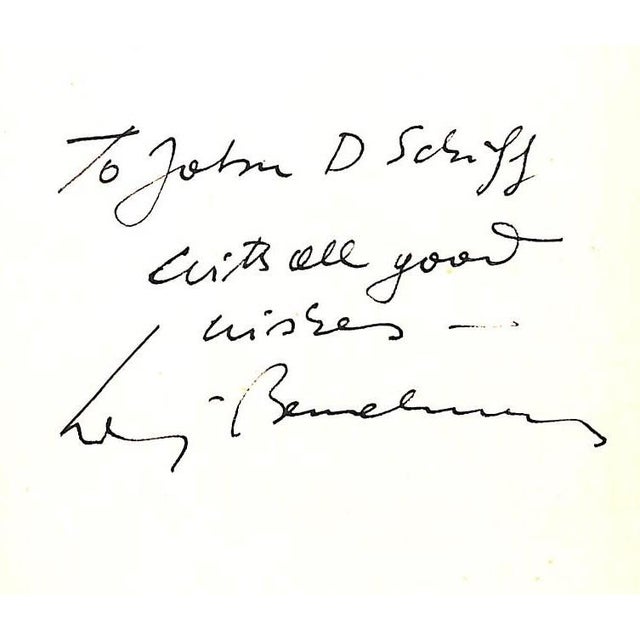 To John D Schiff
with all good
wishes —
Ludwig Bemelmans